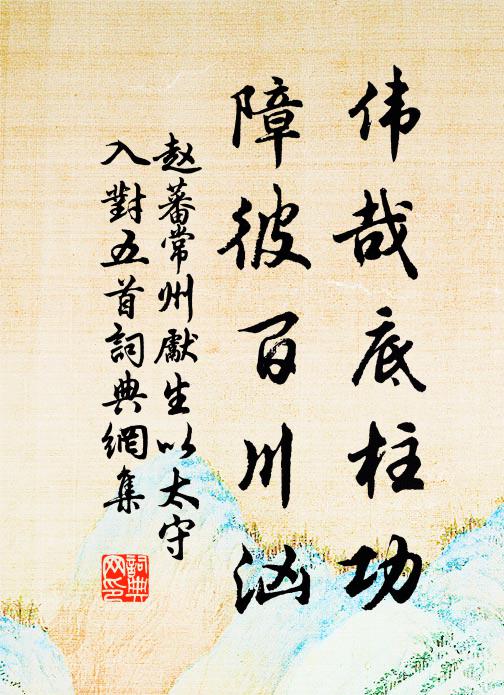 伟哉底柱功
障彼百川汹
赵蕃常州獻生以太守
入對五首詞典網集
詞典
网印